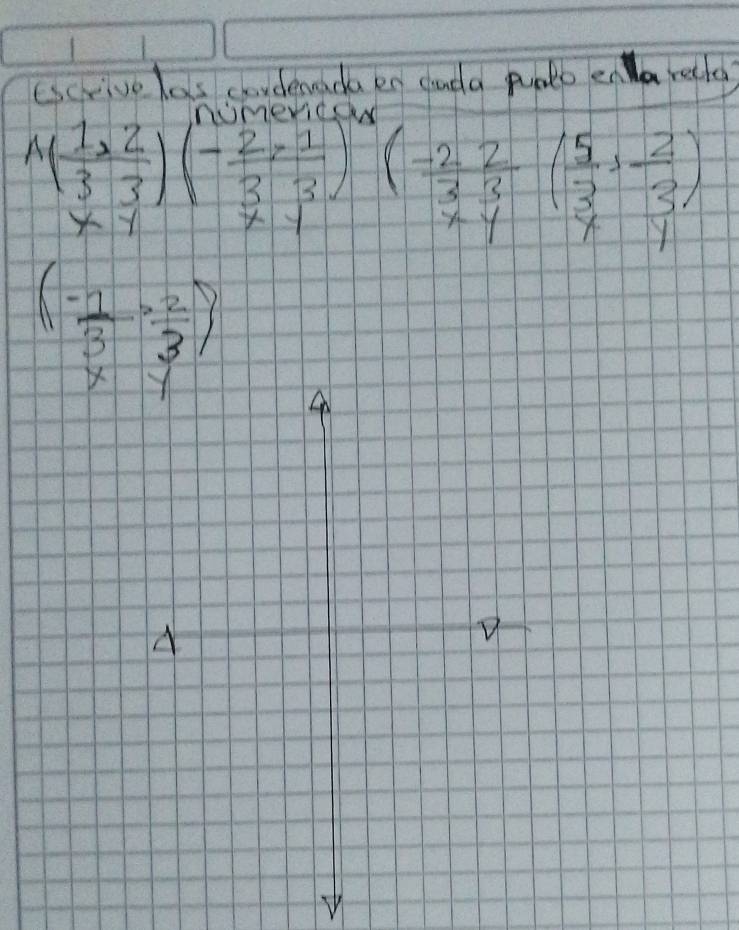 escrive las cordenada en cada punto en la recta
númerica
A(1/3, 2/3) (-2/3, 1/3) (-2/3 2/3 (5/3, -2/3)
x y x y x y x y
(-1/3, 2/3)
x y